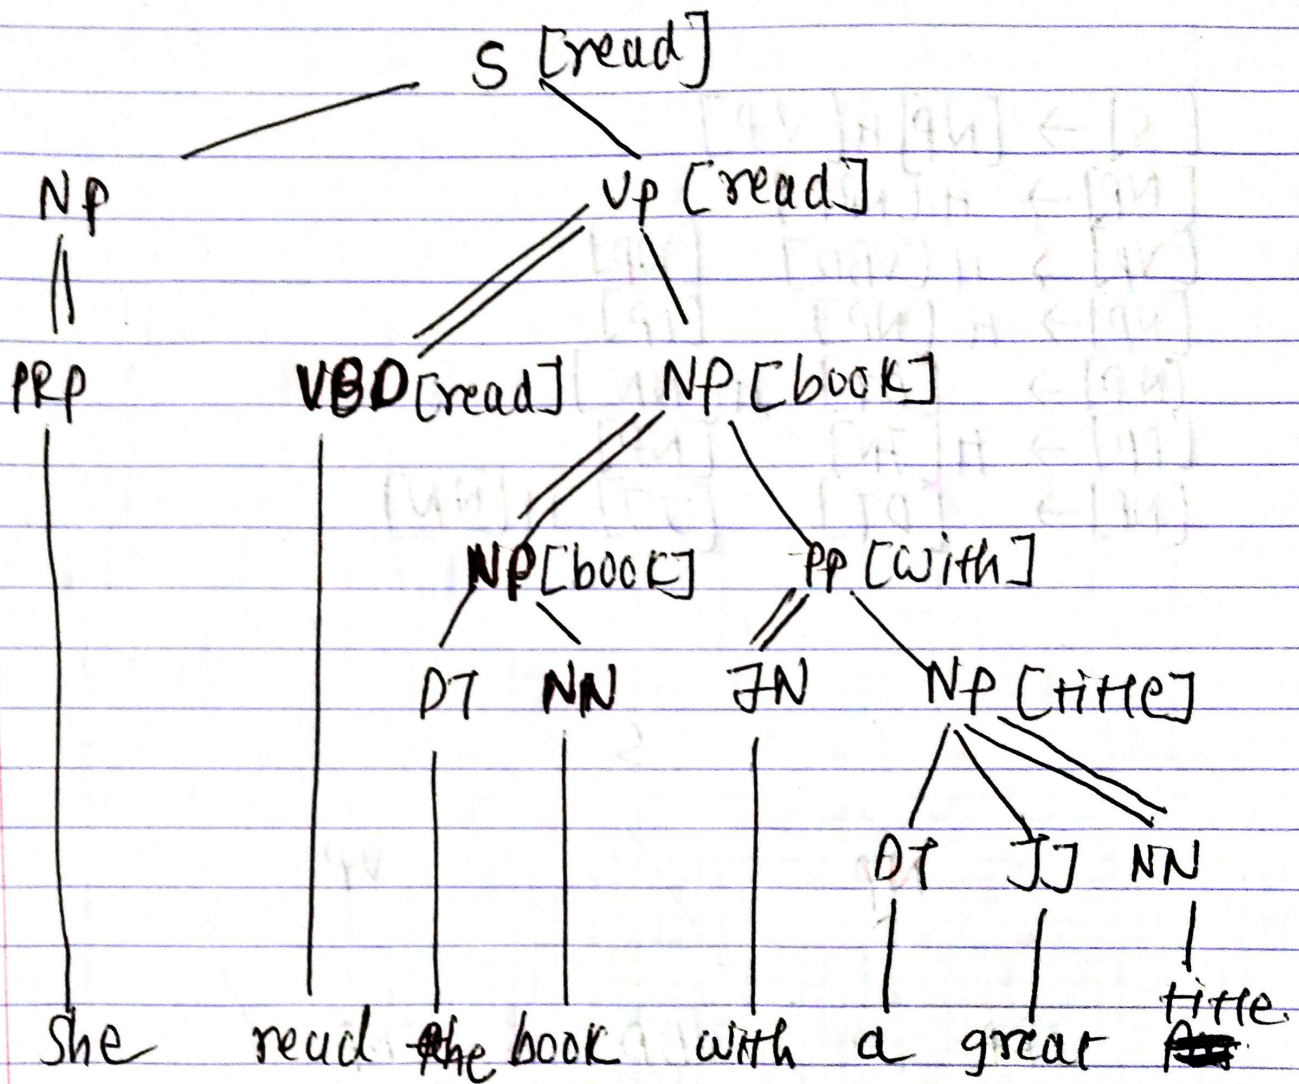 S [read]
NP VP [read]
PRP VBD [read] NP [book]
NP [book] PP [with]
DT NN IN NP [title]
DT JJ NN
title
She read the book with a great